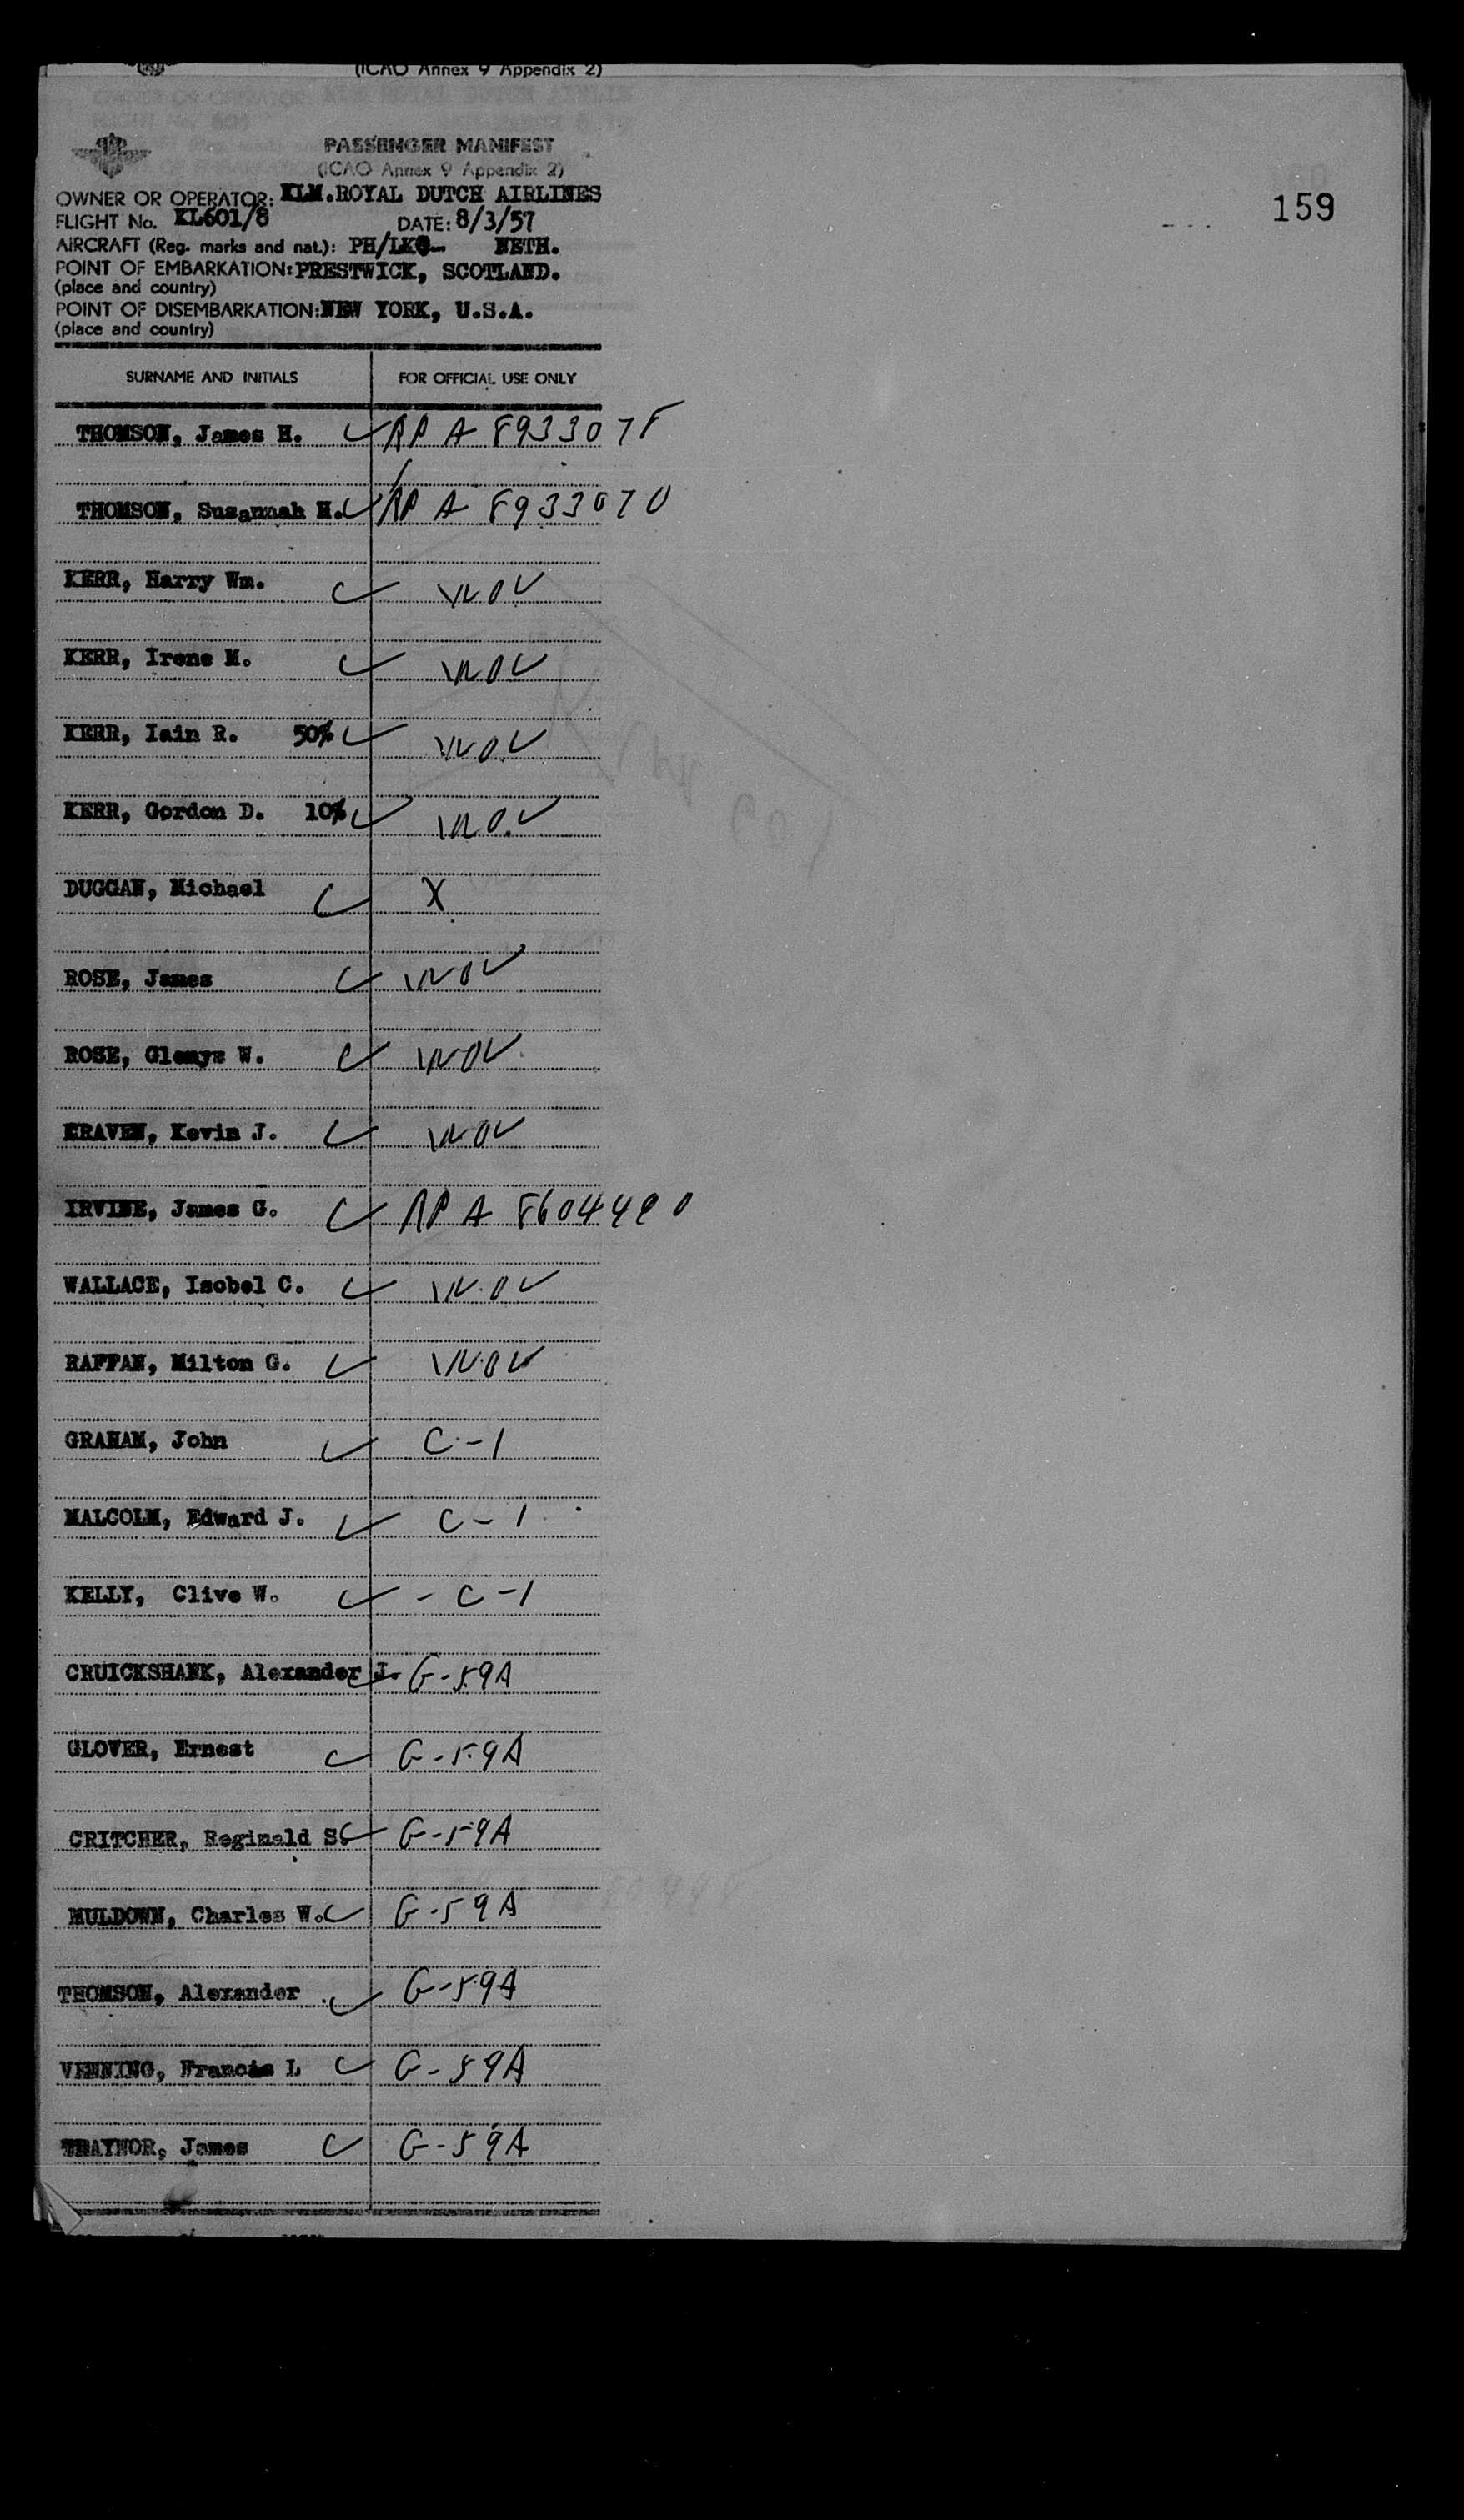 (ICAO Annex 9 Appendix 2)
PASSENGER MANIFEST
(ICAO Annex 9 Appendix 2)
159
OWNER OR OPERATOR: KLM.ROYAL DUTCH AIRLINES
FLIGHT No. KL601/8 DATE: 8/3/57
AIRCRAFT (Reg. marks and nat.): PH/LK NETH.
POINT OF EMBARKATION: PRESTWICK, SCOTLAND.
(place and country)
POINT OF DISEMBARKATION: NEW YORK, U.S.A.
(place and country)
SURNAME AND INITIALS FOR OFFICIAL USE ONLY
THOMSON, James H. RP A 8933078
THOMSON, Susannah H. RP A 8933070
KERR, Harry Wm.
KERR, Irene M.
KERR, Iain R. 50%
KERR, Gordon D. 10%
DUGGAN, Michael X
ROSE, James
ROSE, Glenys W.
KRAVEN, Kevin J.
IRVINE, James G. RP A 8604490
WALLACE, Isobel C.
RAFFAN, Milton G.
GRAHAM, John C-1
MALCOLM, Edward J. C-1
KELLY, Clive W. - C-1
CRUICKSHANK, Alexander J. G-59A
GLOVER, Ernest G-59A
CRITCHER, Reginald S. G-59A
MULDOWN, Charles W. G-59A
THOMSON, Alexander G-59A
VENNING, Francis L G-59A
TRAYNOR, James G-59A